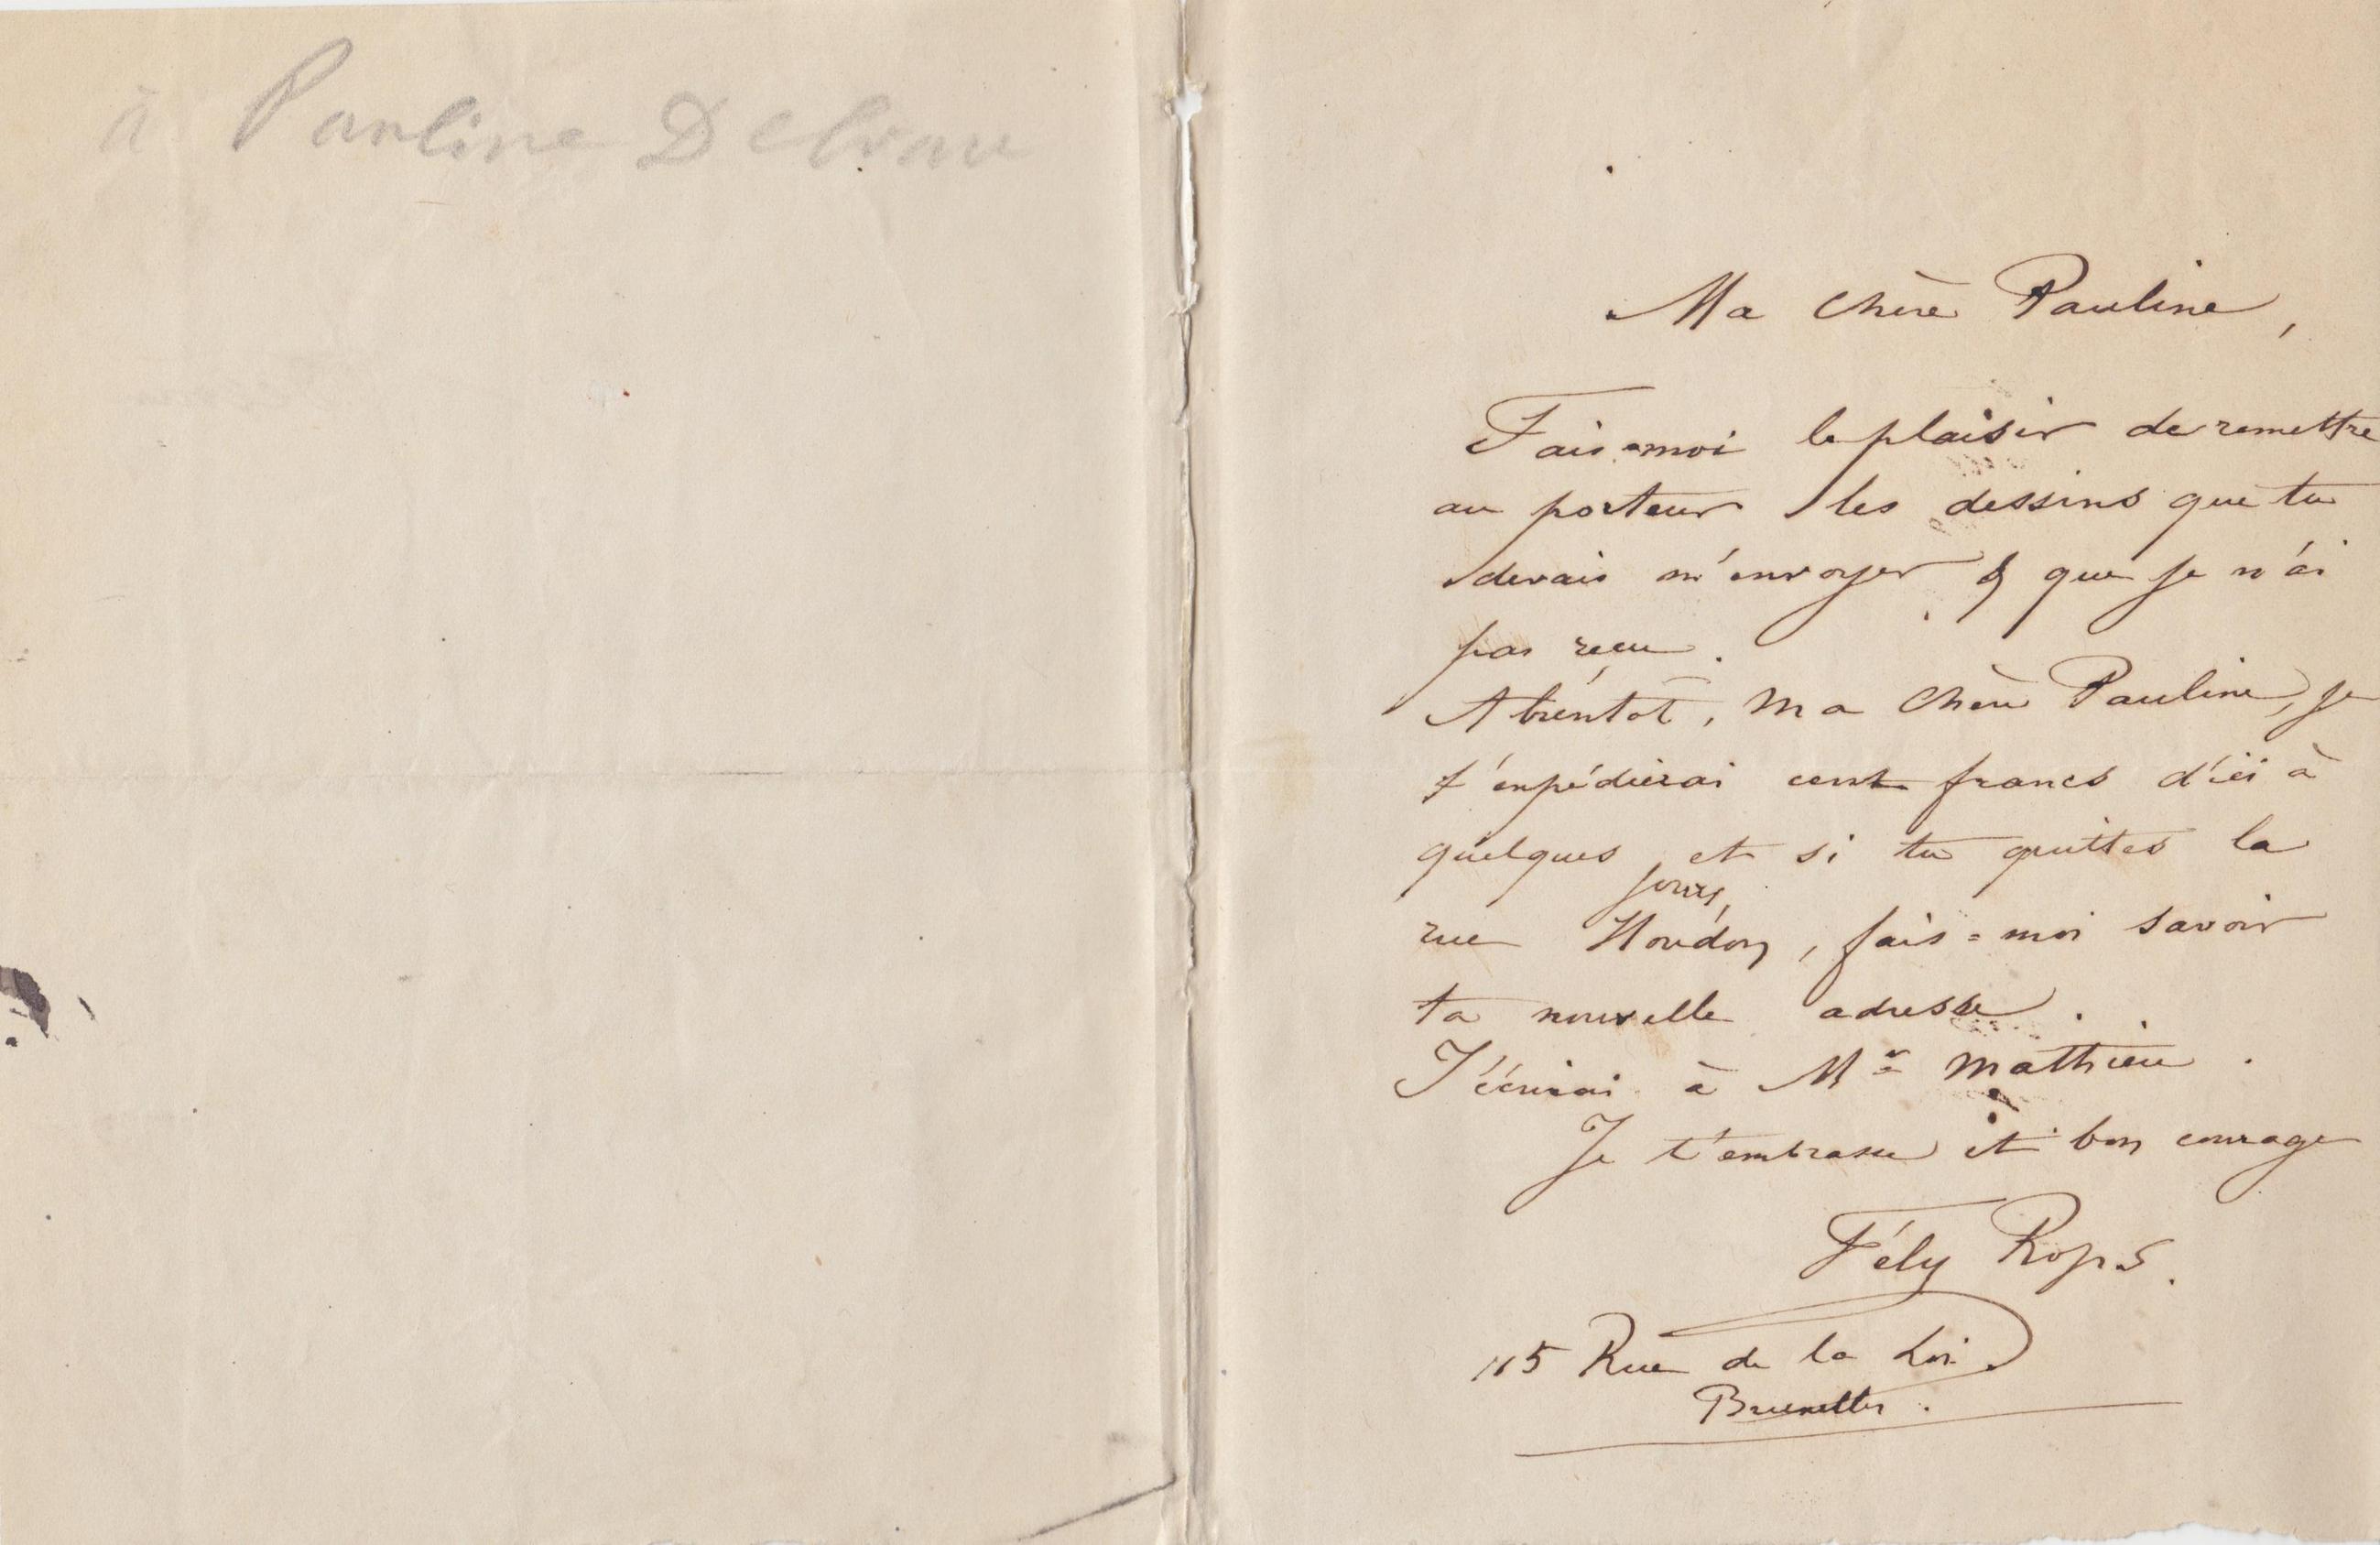 à Pauline Delvau
Ma chère Pauline,
Fais=moi le plaisir de remettre
au porteur les dessins que tu
devais m'envoyer & que je n'ai
pas reçu.
A bientôt, Ma chère Pauline, je
t'enpédierai cent francs d'ici à
quelques jours, et si tu quittes la
rue Houdon, fais=moi savoir
ta nouvelle adresse.
J'écrirai à Mr Mathieu.
Je t'embrasse et bon courage
Fély Rops.
115 Rue de la Loi
Bruxelles.